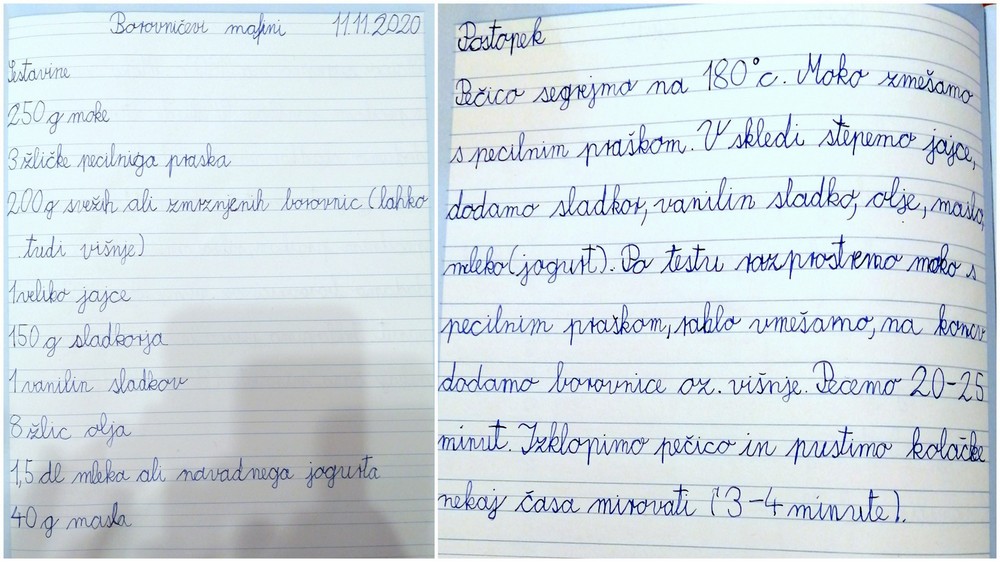 Borovničevi mafini 11.11.2020
Sestavine
250 g moke
3 žličke pecilniga praska
200g svežih ali zmrznjenih borovnic (lahko
tudi višnje)
1 veliko jajce
150 g sladkorja
1 vanilin sladkov
8 žlic olja
1,5 dl mleka ali navadnega jogurta
40 g masla
Postopek
Pečico segrejmo na 180°c. Moko zmešamo
s pecilnim praškom. V skledi stepemo jajce,
dodamo sladkor, vanilin sladko, olje, maslo,
mleko (jogurt). Po testu razprostremo moko s
pecilnim praškom, rahlo vmešamo, na koncu
dodamo borovnice oz. višnje. Pecemo 20-25
minut. Izklopimo pečico in pustimo kolačke
nekaj časa mirovati (3-4 minute).